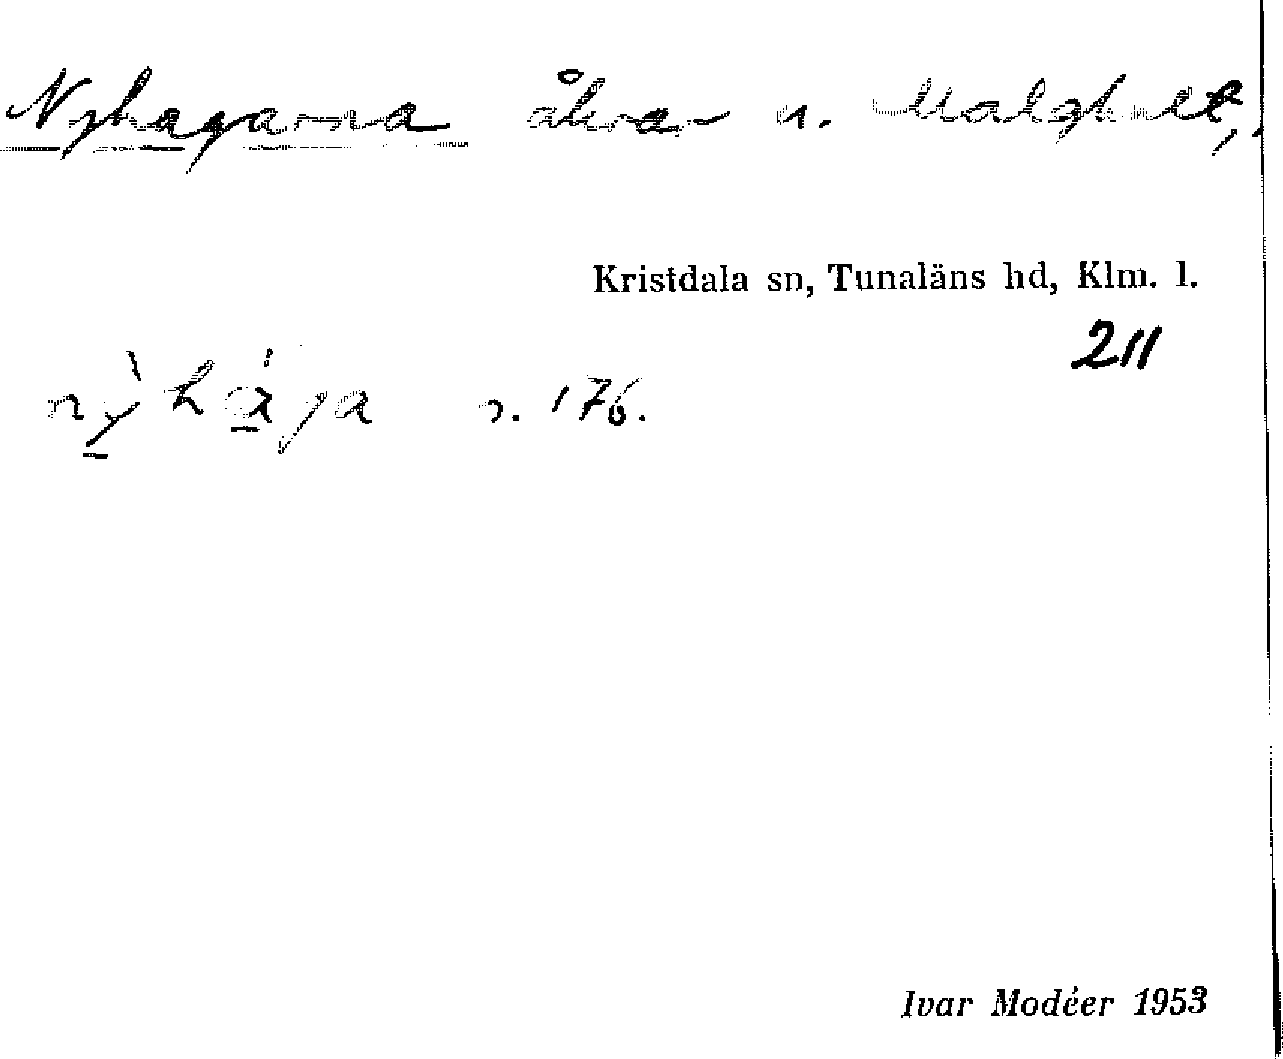 Nyhagarna åkrar n. Malghult,
Kristdala sn, Tunaläns hd, Klm. l.
211
nỳhá̱ga s. 176.
Ivar Modéer 1953